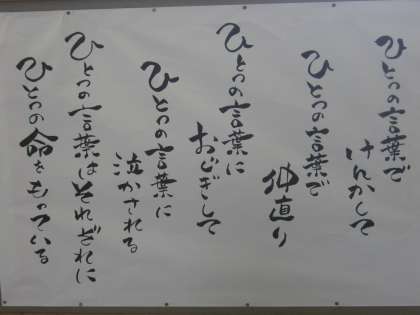 ひとつの言葉で
けんかして
ひとつの言葉で
仲直り
ひとつの言葉に
おじぎして
ひとつの言葉に
泣かされる
ひとつの言葉はそれぞれに
ひとつの命をもっている